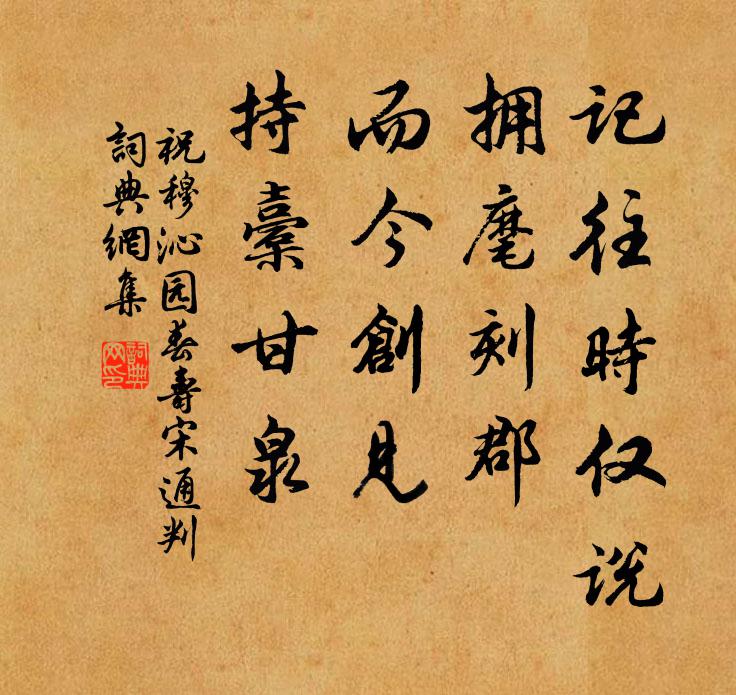 记往時仅说
拥麾刻郡
而今創見
持橐甘泉
祝穆沁园春寿宋通判
詞典網集
詞典网印